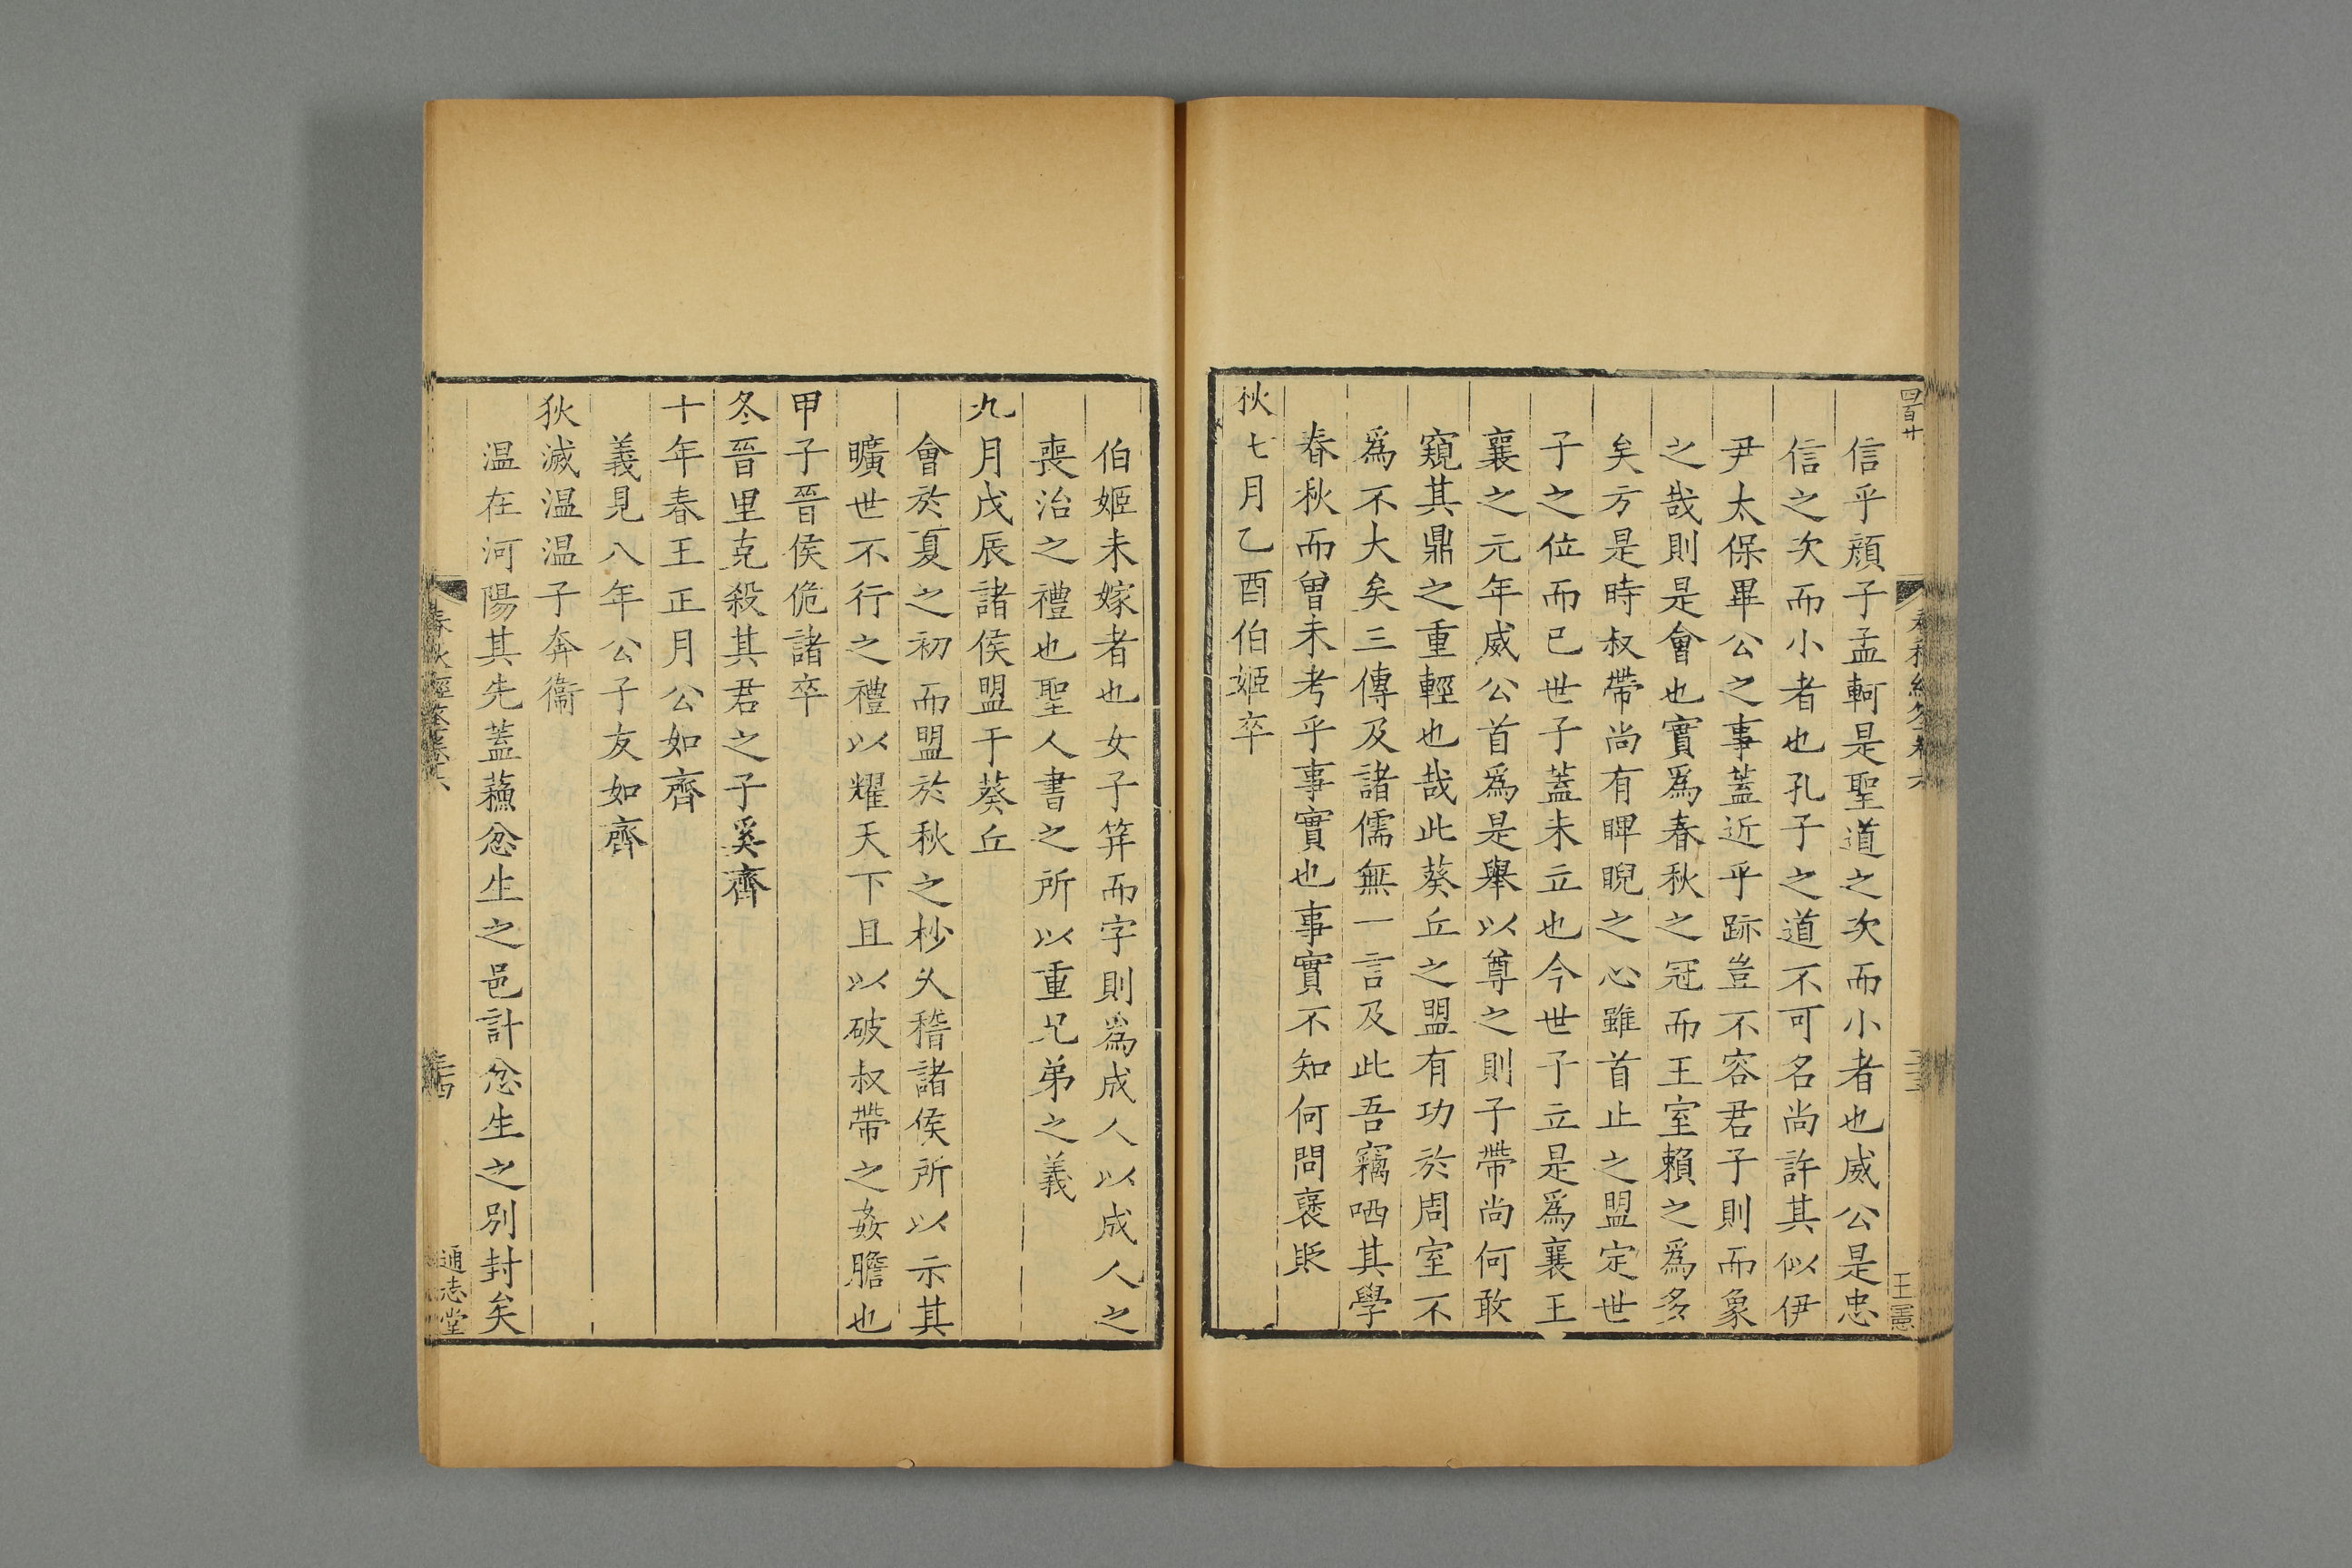 四百廿
王憲
信乎顔子孟軻是聖道之次而小者也威公是忠
信之次而小者也孔子之道不可名尚許其似伊
尹太保畢公之事蓋近乎跡豈不容君子則而象
之哉則是會也實爲春秋之冠而王室賴之爲多
矣方是時叔帶尚有睥睨之心雖首止之盟定世
子之位而已世子蓋未立也今世子立是爲襄王
襄之元年威公首爲是舉以尊之則子帶尚何敢
窺其鼎之重輕也哉此葵丘之盟有功於周室不
爲不大矣三傳及諸儒無一言及此吾竊哂其學
春秋而曾未考乎事實也事實不知何問襃貶
秋七月乙酉伯姬卒
伯姬未嫁者也女子笄而字則爲成人以成人之
喪治之禮也聖人書之所以重兄弟之義
九月戊辰諸侯盟于葵丘
會於夏之初而盟於秋之杪久稽諸侯所以示其
曠世不行之禮以耀天下且以破叔帶之姦膽也
甲子晉侯佹諸卒
冬晉里克殺其君之子奚齊
十年春王正月公如齊
義見八年公子友如齊
狄滅温温子奔衞
温在河陽其先蓋蘓忿生之邑計忿生之別封矣
通志堂